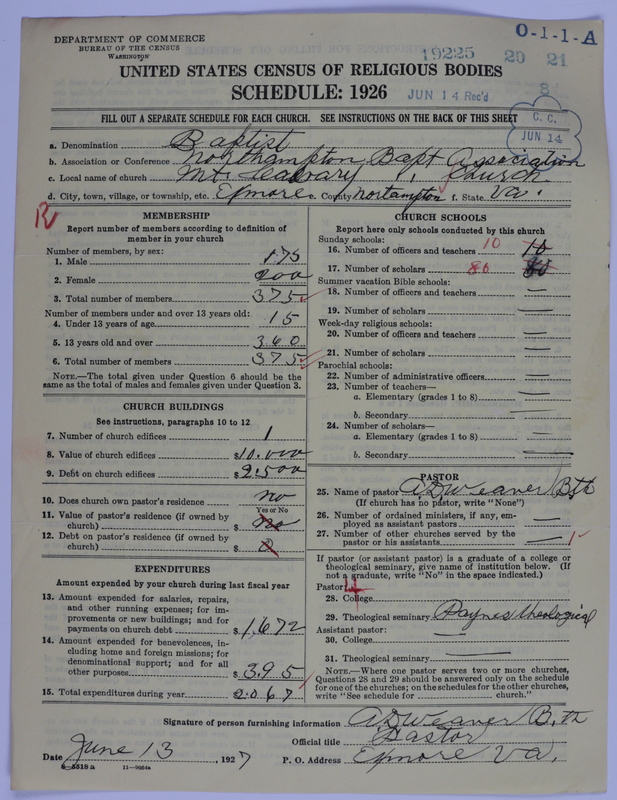 O-1-1-A
DEPARTMENT OF COMMERCE
BUREAU OF THE CENSUS
WASHINGTON
19225 29 21
8
UNITED STATES CENSUS OF RELIGIOUS BODIES
SCHEDULE: 1926
JUN 14 Rec'd
FILL OUT A SEPARATE SCHEDULE FOR EACH CHURCH. SEE INSTRUCTIONS ON THE BACK OF THIS SHEET
C. C.
JUN 14
a. Denomination Baptist
b. Association or Conference Northampton Bapt Association
c. Local name of church Mt. Calvary Church
d. City, town, village, or township, etc. Exmore e. County Nortampton f. State Va.
R
MEMBERSHIP
Report number of members according to definition of
member in your church
Number of members, by sex:
1. Male 175
2. Female 200
3. Total number of members 375
Number of members under and over 13 years old:
4. Under 13 years of age 15
5. 13 years old and over 360
6. Total number of members 375
NOTE.—The total given under Question 6 should be the
same as the total of males and females given under Question 3.
CHURCH BUILDINGS
See instructions, paragraphs 10 to 12
7. Number of church edifices 1
8. Value of church edifices $10.000
9. Debt on church edifices $2.500
10. Does church own pastor's residence no
Yes or No
11. Value of pastor's residence (if owned by
church) $ no
12. Debt on pastor's residence (if owned by
church) $ 0
EXPENDITURES
Amount expended by your church during last fiscal year
13. Amount expended for salaries, repairs,
and other running expenses; for im-
provements or new buildings; and for
payments on church debt $1.672
14. Amount expended for benevolences, in-
cluding home and foreign missions; for
denominational support; and for all
other purposes $395
15. Total expenditures during year $2.067
CHURCH SCHOOLS
Report here only schools conducted by this church
Sunday schools:
16. Number of officers and teachers 10 10
17. Number of scholars 80 80
Summer vacation Bible schools:
18. Number of officers and teachers —
19. Number of scholars —
Week-day religious schools:
20. Number of officers and teachers —
21. Number of scholars —
Parochial schools:
22. Number of administrative officers —
23. Number of teachers—
a. Elementary (grades 1 to 8) —
b. Secondary —
24. Number of scholars—
a. Elementary (grades 1 to 8) —
b. Secondary —
PASTOR
25. Name of pastor A D Weaver B.th
(If church has no pastor, write "None")
26. Number of ordained ministers, if any, em-
ployed as assistant pastors —
27. Number of other churches served by the
pastor or his assistants — 1
If pastor (or assistant pastor) is a graduate of a college or
theological seminary, give name of institution below. (If
not a graduate, write "No" in the space indicated.)
Pastor: 4
28. College
29. Theological seminary Paynes theological
Assistant pastor:
30. College —
31. Theological seminary —
NOTE.—Where one pastor serves two or more churches,
Questions 28 and 29 should be answered only on the schedule
for one of the churches; on the schedules for the other churches,
write "See schedule for church."
Signature of person furnishing information A D Weaver B.th
Official title Pastor
Date June 13, 1927 P. O. Address Exmore Va.
8-5518 a 11-9084a